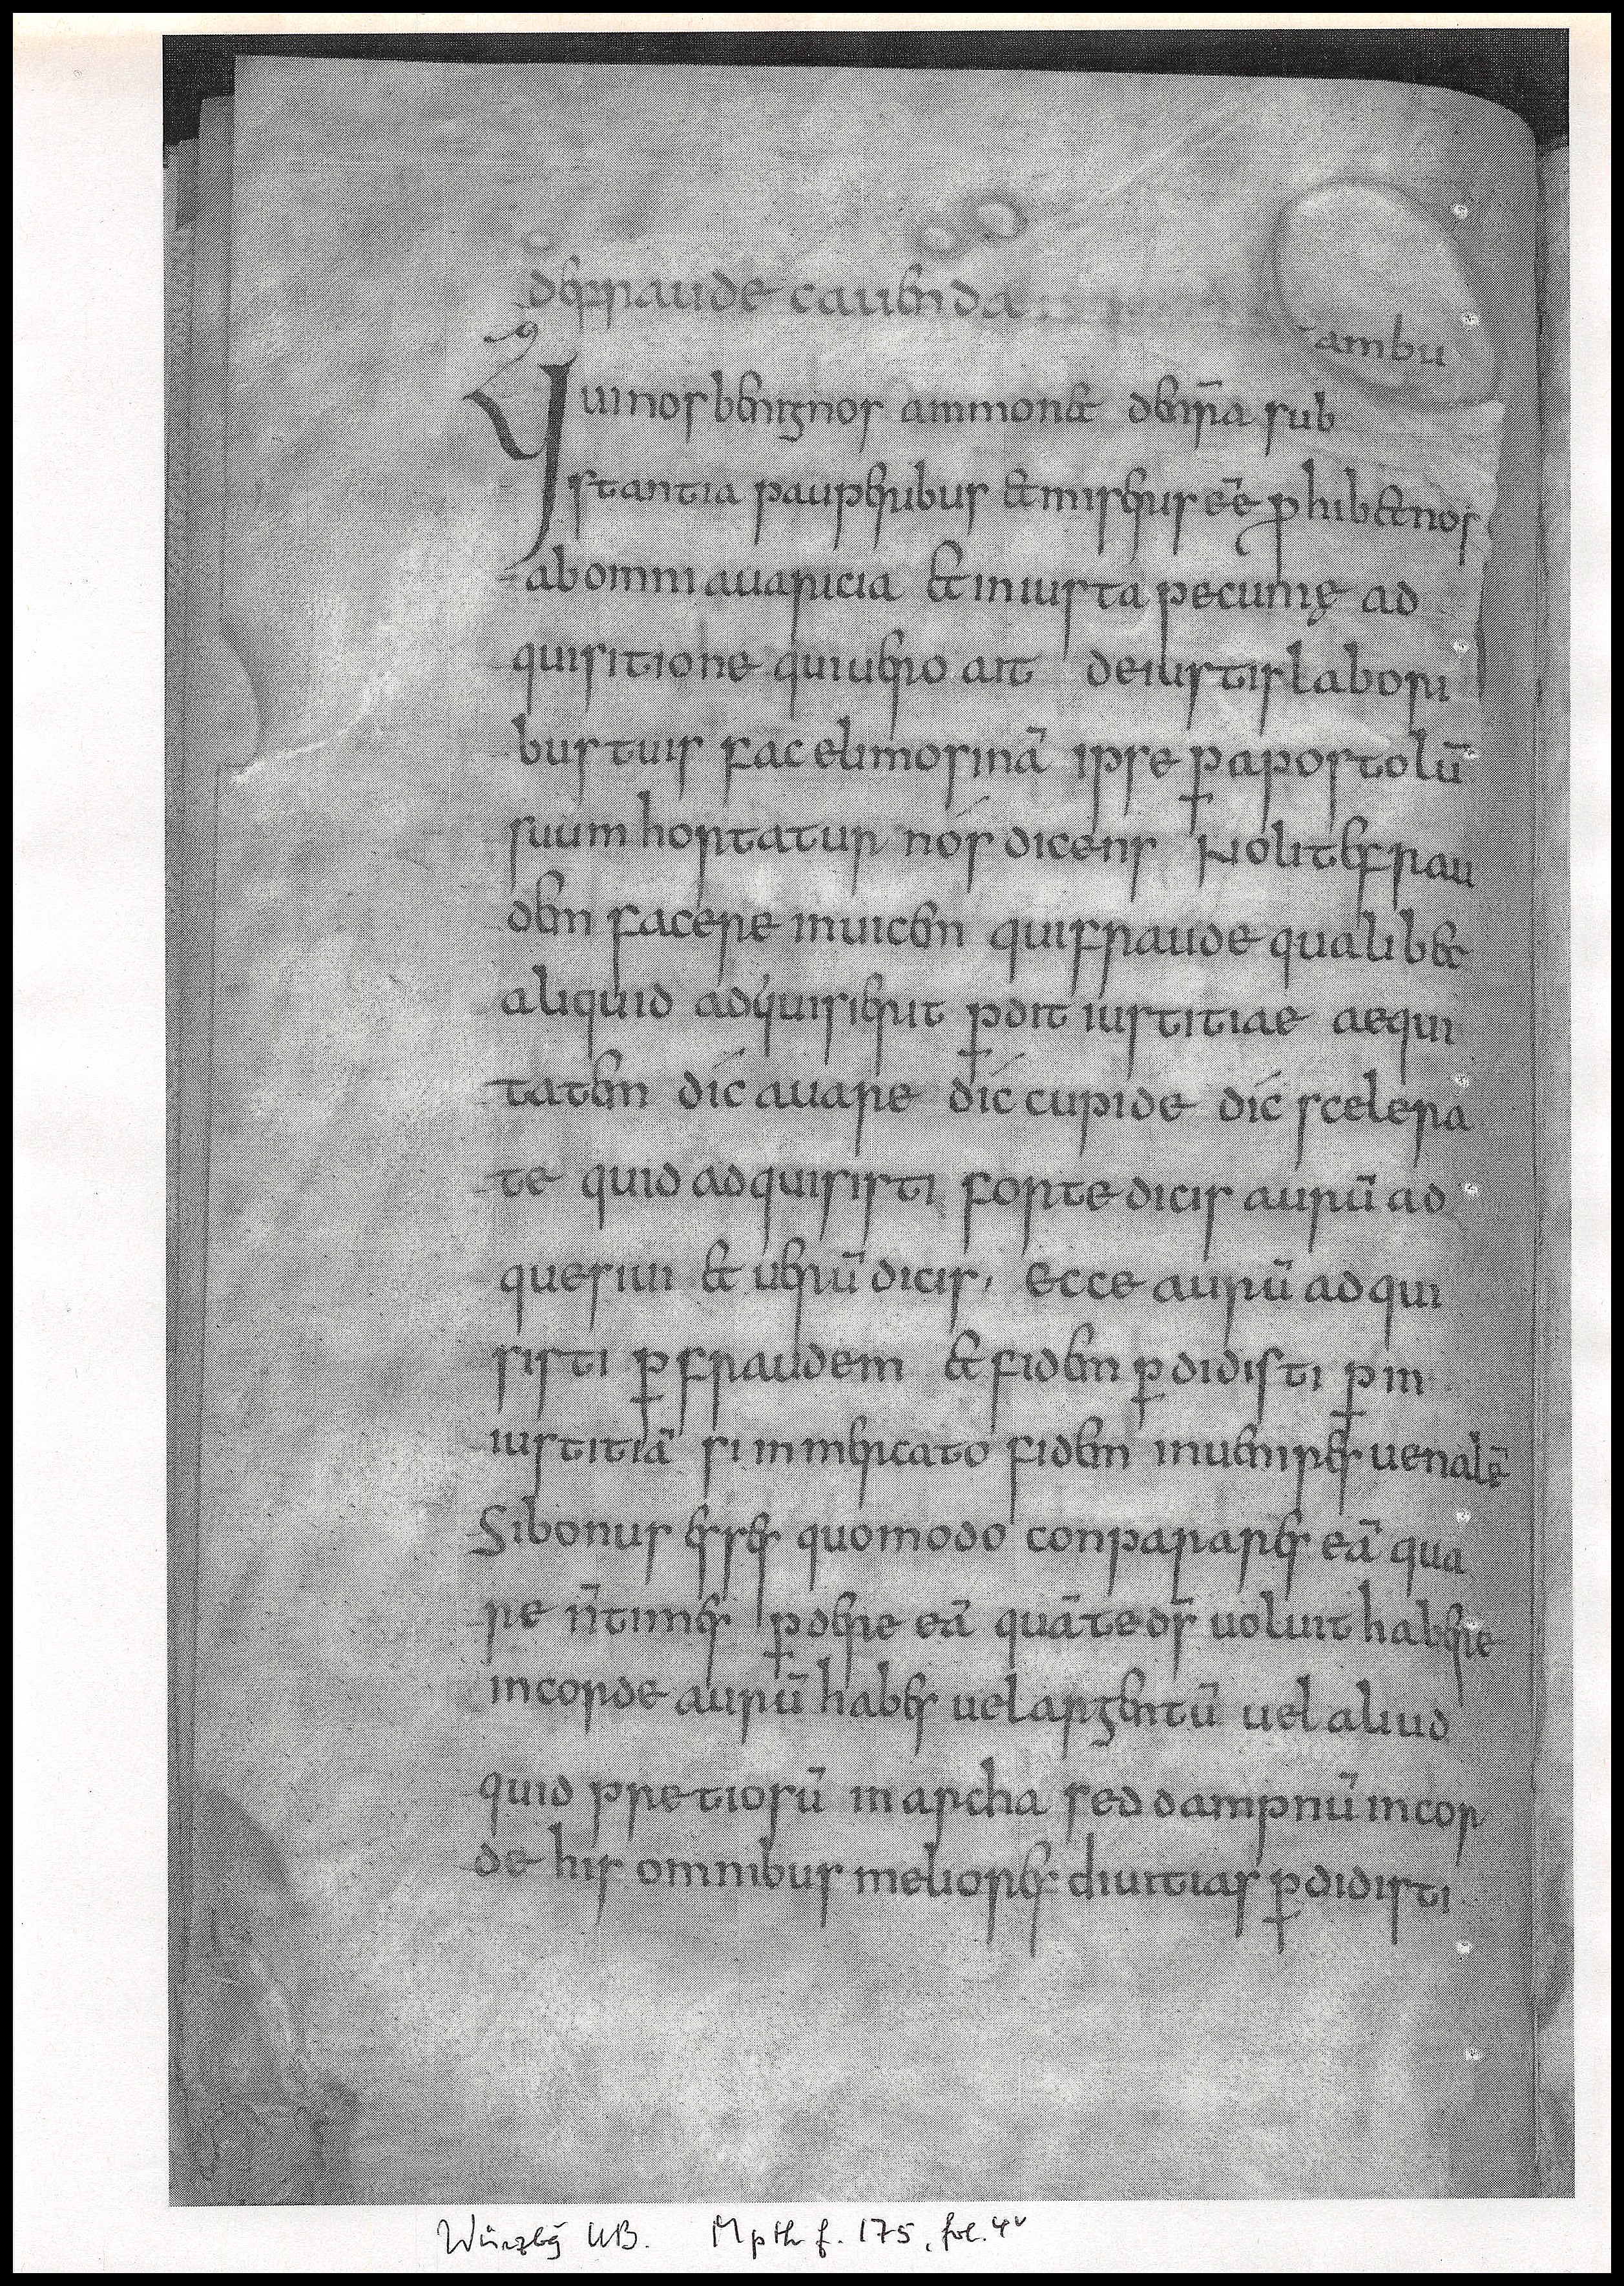 de fraude cauenda
ambu
Qui nos benignos ammonet de nr̄a sub
stantia pauperibus et miseris eē prohibet nos
ab omni auaricia et iniusta pecunię ad
quisitione qui uero ait de iustis labori
bus tuis fac elimosinā ipse ꝑ apostolū
suum hortatur nós dicens Nolite frau
dem facere inuicem qui fraude qualibet
aliquid adquisierit ꝑdit iustitiae aequi
tatem díc auare díc cupide díc scelera
te quid adquisisti forte dicis aurū ad
quesiui et uerū dicis, Ecce aurū adqui
sisti ꝑ fraudem et fidem ꝑdidisti ꝑ in
iustitiā si in mercato fidem inuenires uenalē
Si bonus esses quomodo conparares eā qua
re n̄ times ꝑdere eā quā te d̄s uoluit habere
in corde aurū habes uel argentū uel aliud
quid pretiosū in archa sed dampnū in cor
de his omnibus meliores diuitias ꝑdidisti
Würzbg UB. Mpth f. 175, fol. 4v